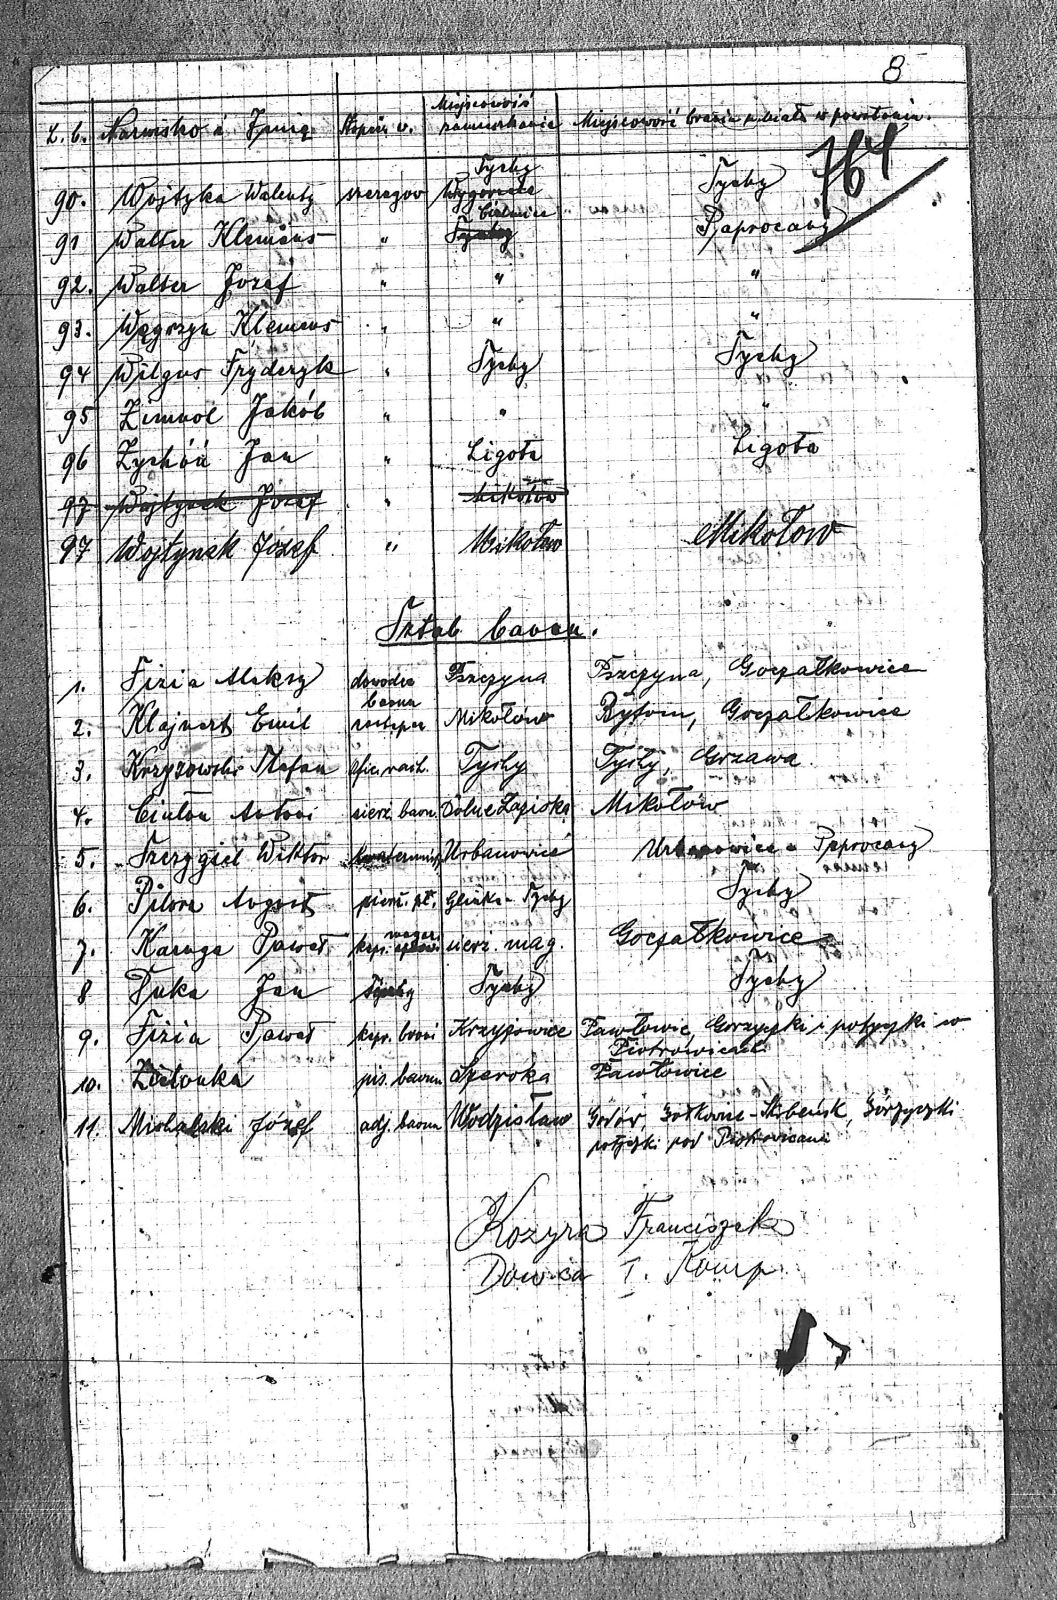 8
L. b. Nazwisko i Imię Stopień w. Miejscowość zamieszkania Miejscowość brania udziału w powstaniu.
764
Tychy
90. Wojtyka Walenty szeregow Tychy
Bielnice
91 Walter Klemens " Tychy Paprocany
92. Walter Józef " " "
93. Węgrzyn Klemens " " "
94 Wilgus Fryderyk " Tychy Tychy
95 Zimnol Jakób " " "
96 Zychóń Jan " Ligota Ligota
97 Wojtynek Józef " Mikołów
97 Wojtynek Józef " Mikołow Mikołow
Sztab baonu.
1. Fizia Aleksy dowodca baonu Pszczyna Pszczyna, Goczałkowice
2. Klajnert Emil zastępca Mikołów Bytom, Goczałkowice
3. Krzyżowski Stefan ofic. rach. Tychy Tychy, Grzawa
4. Ciulon Antoni sierż. baonu Dolne Łaziska Mikołów
5. Szczygieł Wiktor Urbanowice Urbanowice Paprocany
6. Pilorz Augost pierw. pł. Glinka - Tychy Tychy
7. Kaszuga Paweł kapr. magaz. sierż. mag. Goczałkowice
8 Puka Jan Tychy Tychy
9. Fizia Paweł kapr. broni Krzyżowice Pawłowic, Gorzyczki i potyczki w
Piotrowicach
10. Zielonka pis. baonu Szeroka Pawłowice
11. Michalski Józef adj. baonu Wodzisław Godów, Gołkowice - Skrbeńsk, Gorzyczki
potyczki pod Piotrowicami
Kozyra Franciszek
Dowca I. Komp.